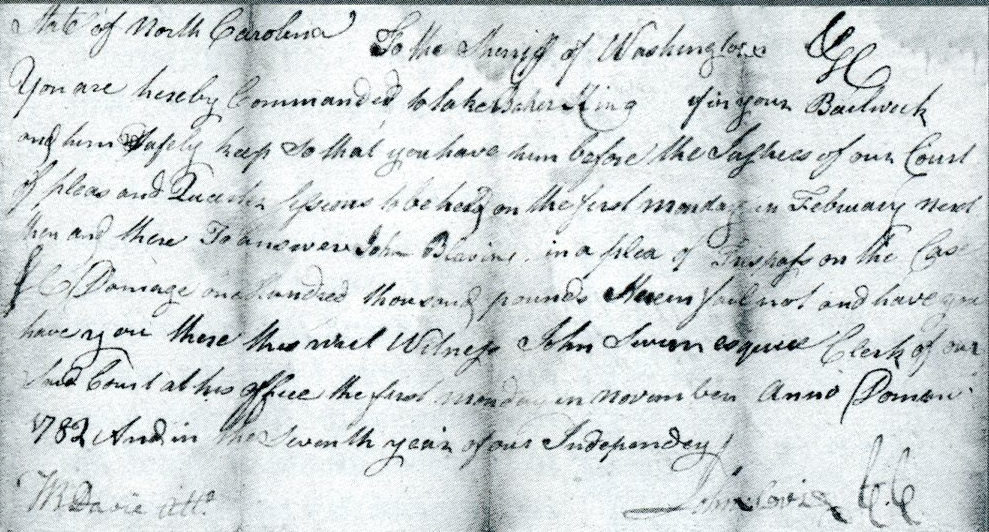 State of North Carolina To the Sheriff of Washington &C
You are hereby Commanded to take Baker King if in your Bailwick
and him Safely keep So that you have him before the Justices of our Court
of pleas and Quarter Sessions to be held on the first monday in February next
then and there To answere John Blevins in a plea of Trispass on the Case
&C Damage one Hundred thousand pounds Herein fail not and have you
have you there this writ Witness John Sevier esquire Clerk of our
Said Court at his office the first monday in november Anno Domini
1782 And in the Seventh year of our Independey
Davie Atta
John C.C.